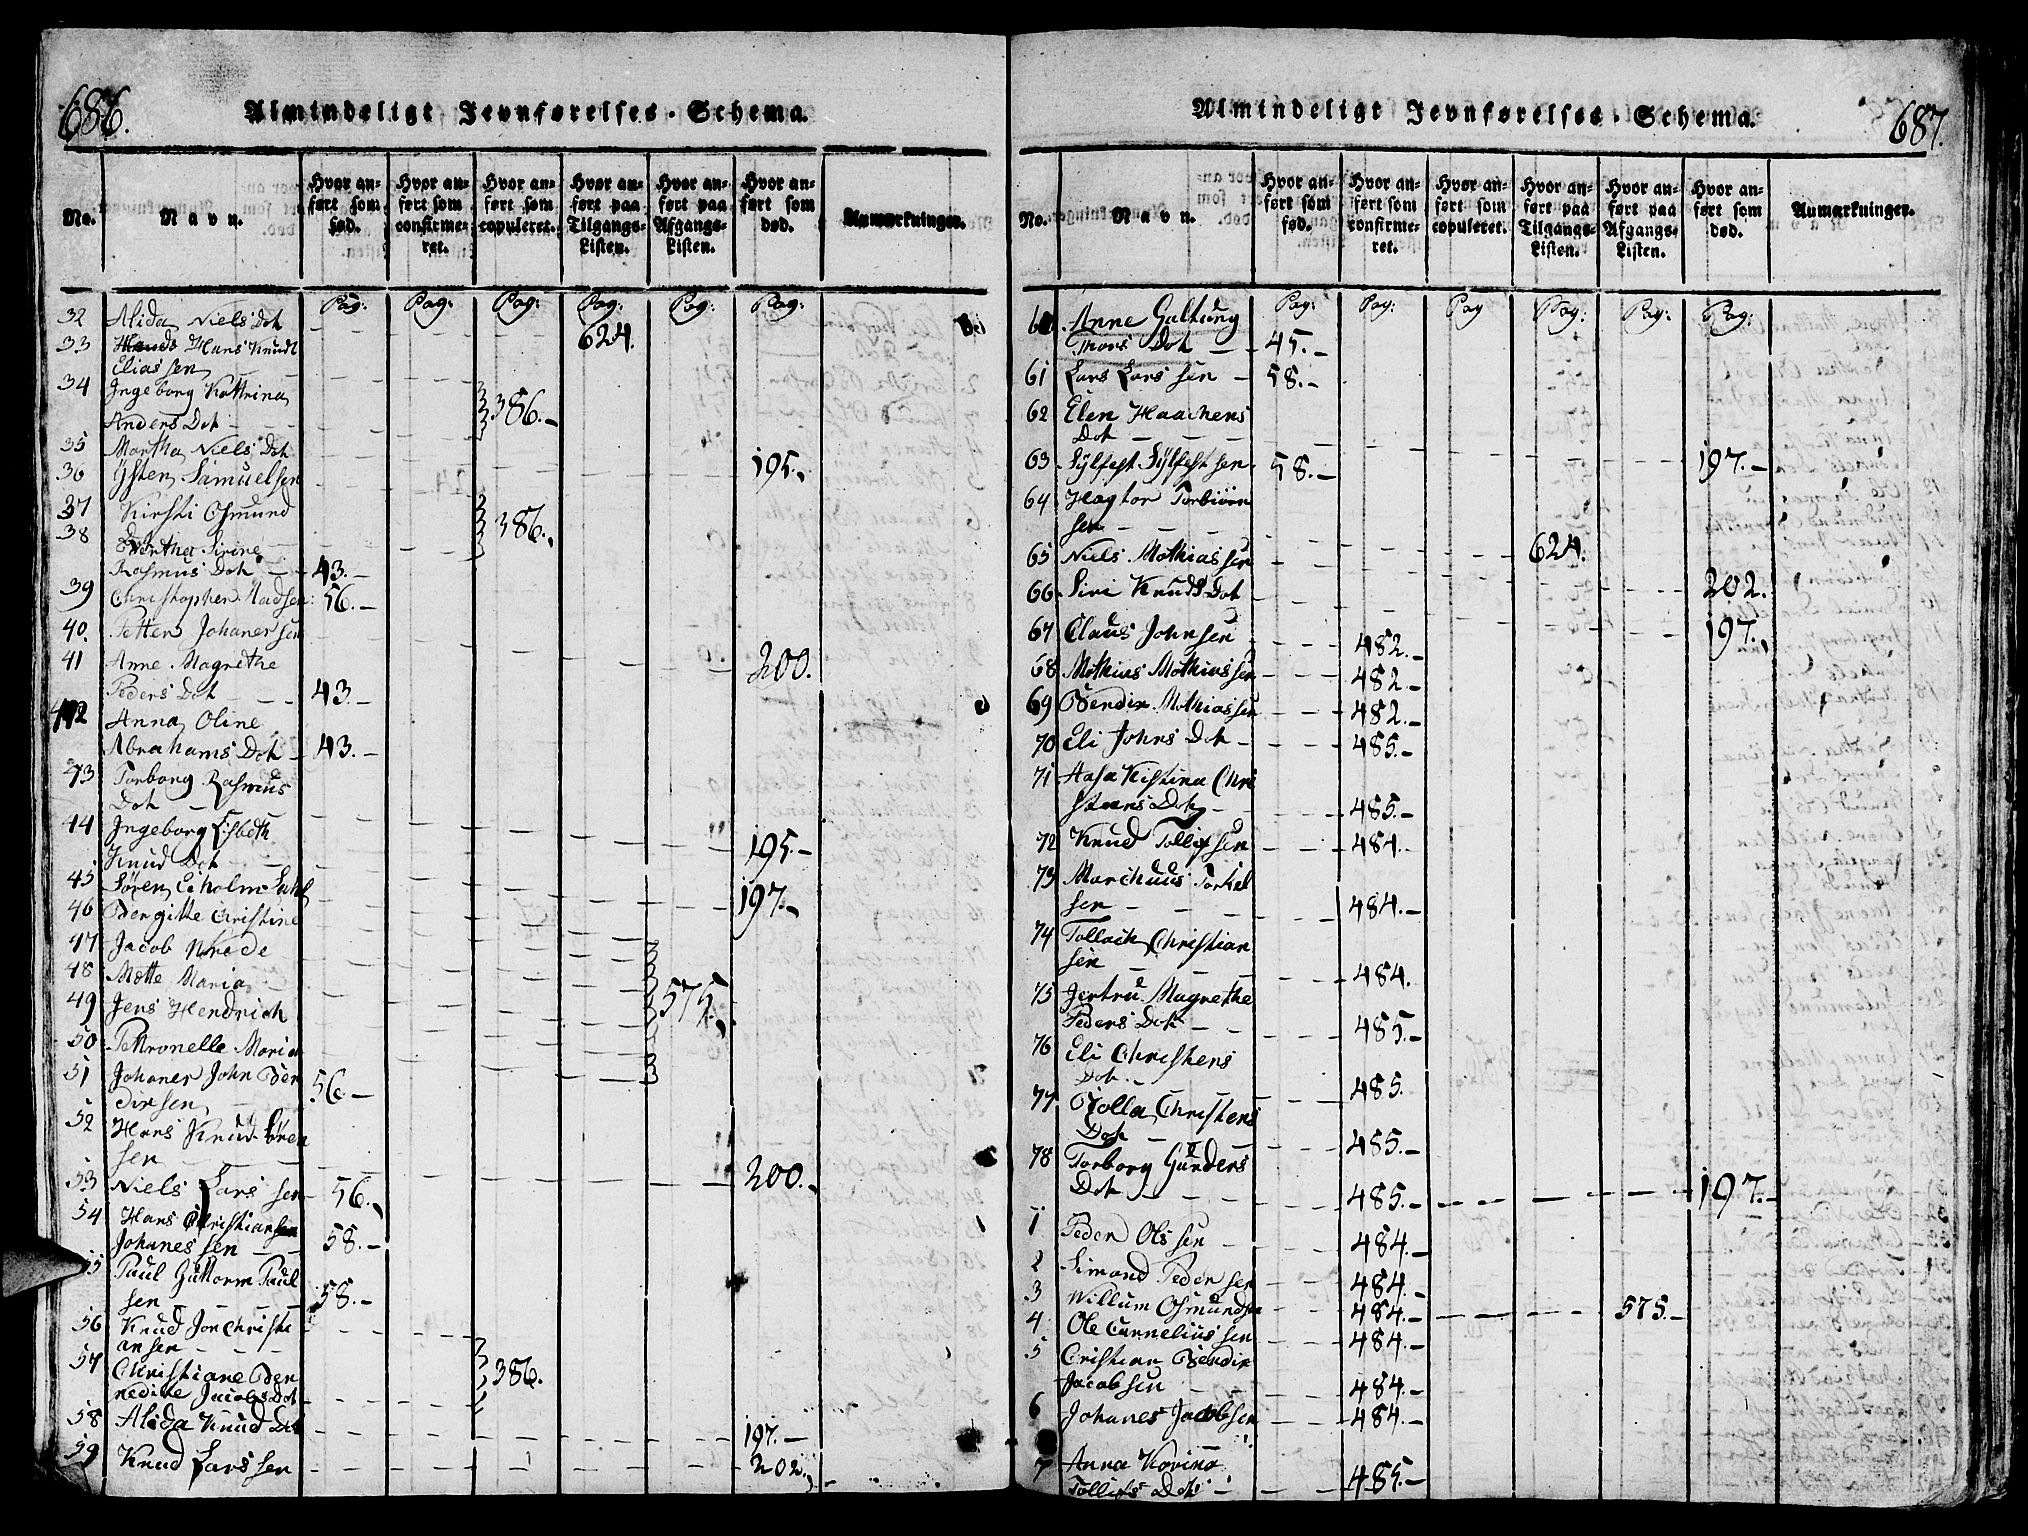 686.
Almindeligt Jevnførelses-Schema.
No.
Navn.
Hvor an-
ført som
fød.
Hvor an-
ført som
confirme-
ret.
Hvor an-
ført som
copuleret.
Hvor an-
ført paa
Tilgangs-
Listen.
Hvor an-
ført paa
Afgangs-
Listen.
Hvor an-
ført som
død.
Anmærkninger.
Pag: Pag: Pag: Pag: Pag: Pag:
32 Alida Niels Dot 624.
33 Hans Knud
Elias sen
34 Ingeborg Kattrina
Anders Dot 386.
35 Martha Niels Dot
36 Østen Samuelsen 195.
37 Kirsti Osmund
38 Berthe Sirine 386.
Rasmus Dot 43.
39 Christopher Madsen 56.
40. Petter Johaner sen
41 Anne Magrethe 200.
Peders Dot 43
42 Anna Oline
Abrahams Dot 43.
43 Torborg Rasmus
Dot
44 Ingeborg Lisbeth
Knud Dot 195.
45 Søren Eiholm 197.
46 Bergitte Christine
47 Jacob Wrede
48 Mætte Maria
49 Jens Hendrich 575.
50 Pettronelle Maria
51 Johaner John Ben
dixsen 56
52 Hans Knud Søren
sen 200.
53 Niels Lars sen 56.
54 Hans Christiansen
Johanes sen 58.
55 Paul Guttorm Paul
sen 58.
56 Knud Jon Christi
ansen
57 Christiane Ber 386.
nedine Jacobs Dot
58 Alida Knud Dot 197.
59 Knud Lars sen 202.
687.
Almindeligt Jevnførelses-Schema.
No.
Navn.
Hvor an-
ført som
fød.
Hvor an-
ført som
confirme-
ret.
Hvor an-
ført som
copuleret.
Hvor an-
ført paa
Tilgangs-
Listen.
Hvor an-
ført paa
Afgangs-
Listen.
Hvor an-
ført som
død.
Anmærkninger.
Pag: Pag: Pag Pag: Pag: Pag:
60. Anne Galtung
Thors Dot 45.
61 Lars Lars sen 58.
62 Elen Haachens
Dot 197.
63 Sylfest Sylfest sen 58.
64 Hagtor Torbiørn
sen 624.
65 Niels Mathias sen 202.
66 Siri Knuds Dot 197.
67 Claus John sen 482.
68 Mathias Mathias sen 482
69 Bendix Mathias sen 482.
70 Eli Johns Dot 485.
71 Aasa Kistina Chri
stians Dot 485.
72 Knud Tollif sen 484.
73 Marchuus Torkel
sen 484.
74 Tollach Christian
sen 484.
75 Jertru Magrethe
Peders Dot 485.
76 Eli Christens
Dot 485.
77 Christens
Dot 485.
78 Torborg Gunders
Dot 485. 197.
1 Peder Ols sen 484.
2 Simond Peder sen 484.
3 Willum Osmundsen 484. 575.
4 Ole Cornelius sen 484.
5 Cristian Bendix
Jacob sen 484.
6 Johanes Jacobsen 484.
7 Anna Karina
Tollifs Dot 485.